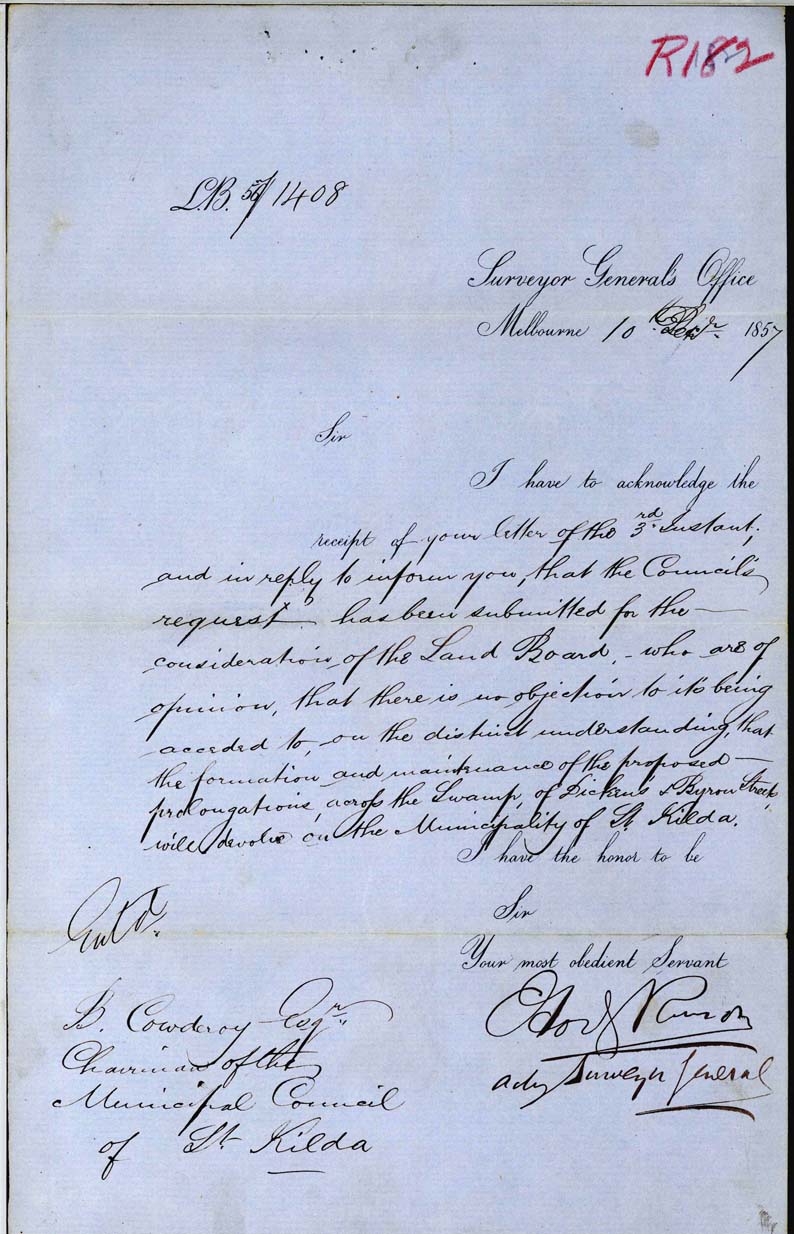 R182
L.B. 57/1408
Surveyor General's Office
Melbourne 10th Decr. 1857
Sir
I have to acknowledge the
receipt of your letter of the 3rd Instant,
and in reply to inform you, that the Council's
request has been submitted for the
consideration of the Land Board, - who are of
opinion, that there is no objection to it's being
acceded to, on the distinct understanding, that
the formation and maintenance of the proposed
prolongations, across the Swamp, of Dickens & Byron Streets,
will devolve on the Municipality of St. Kilda.
I have the honor to be
Sir
Your most obedient Servant
Entd.
B. Cowderoy Esqr.
Chairman of the
Municipal Council
of St Kilda
Actg Surveyor General